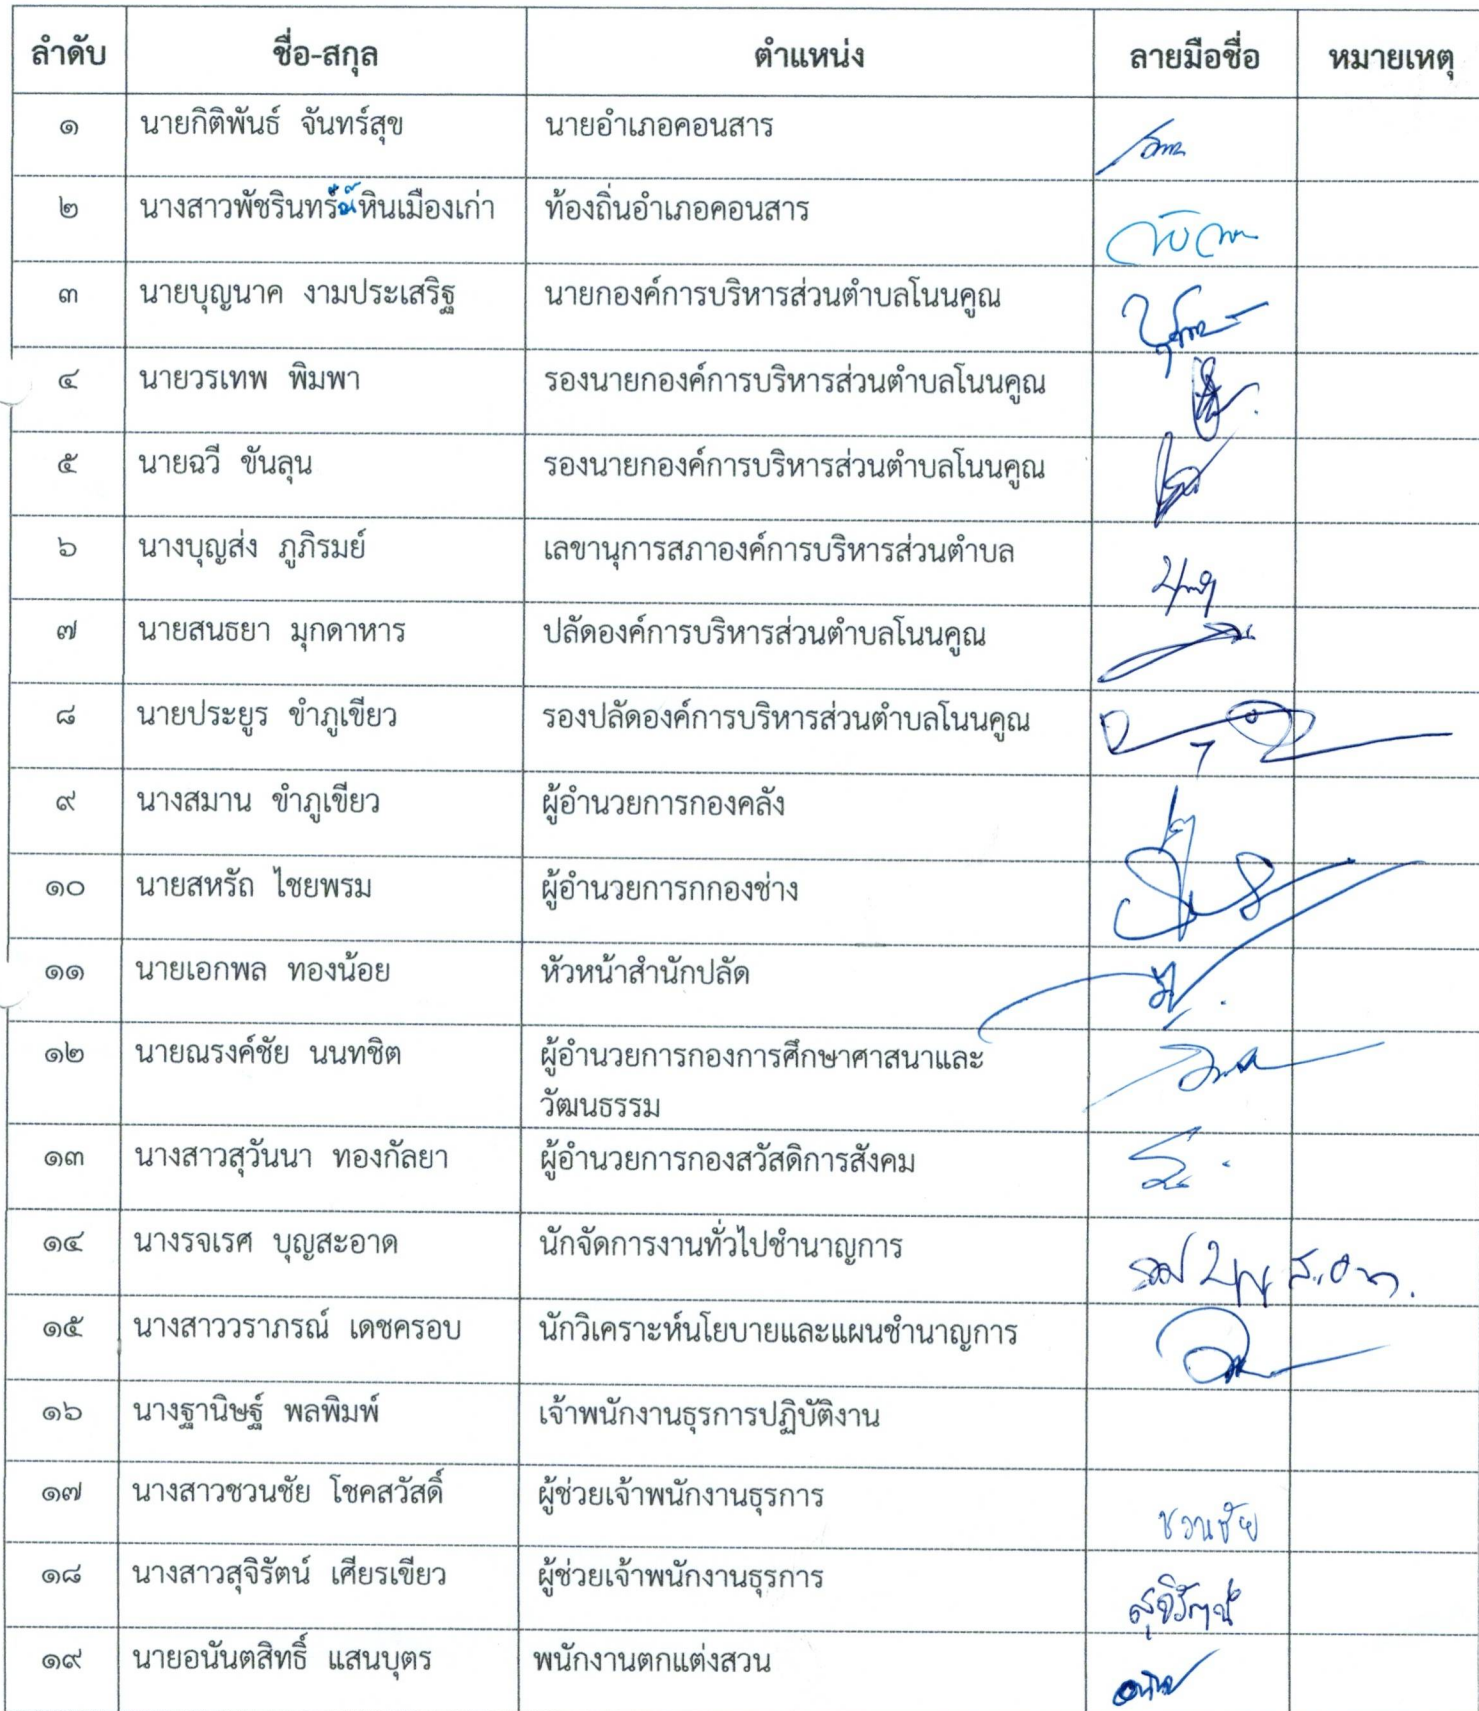 ลำดับ ชื่อ-สกุล ตำแหน่ง ลายมือชื่อ หมายเหตุ
๑ นายกิติพันธ์ จันทร์สุข นายอำเภอคอนสาร
๒ นางสาวพัชรินทร์ หินเมืองเก่า ท้องถิ่นอำเภอคอนสาร
๓ นายบุญนาค งามประเสริฐ นายกองค์การบริหารส่วนตำบลโนนคูณ
๔ นายวรเทพ พิมพา รองนายกองค์การบริหารส่วนตำบลโนนคูณ
๕ นายฉวี ขันลุน รองนายกองค์การบริหารส่วนตำบลโนนคูณ
๖ นางบุญส่ง ภูภิรมย์ เลขานุการสภาองค์การบริหารส่วนตำบล
๗ นายสนธยา มุกดาหาร ปลัดองค์การบริหารส่วนตำบลโนนคูณ
๘ นายประยูร ขำภูเขียว รองปลัดองค์การบริหารส่วนตำบลโนนคูณ
๙ นางสมาน ขำภูเขียว ผู้อำนวยการกองคลัง
๑๐ นายสหรัถ ไชยพรม ผู้อำนวยการกกองช่าง
๑๑ นายเอกพล ทองน้อย หัวหน้าสำนักปลัด
๑๒ นายณรงค์ชัย นนทชิต ผู้อำนวยการกองการศึกษาศาสนาและ
วัฒนธรรม
๑๓ นางสาวสุวันนา ทองกัลยา ผู้อำนวยการกองสวัสดิการสังคม
๑๔ นางรจเรศ บุญสะอาด นักจัดการงานทั่วไปชำนาญการ
๑๕ นางสาววราภรณ์ เดชครอบ นักวิเคราะห์นโยบายและแผนชำนาญการ
๑๖ นางฐานิษฐ์ พลพิมพ์ เจ้าพนักงานธุรการปฏิบัติงาน
๑๗ นางสาวชวนชัย โชคสวัสดิ์ ผู้ช่วยเจ้าพนักงานธุรการ ชวนชัย
๑๘ นางสาวสุจิรัตน์ เศียรเขียว ผู้ช่วยเจ้าพนักงานธุรการ สุจิรัตน์
๑๙ นายอนันตสิทธิ์ แสนบุตร พนักงานตกแต่งสวน